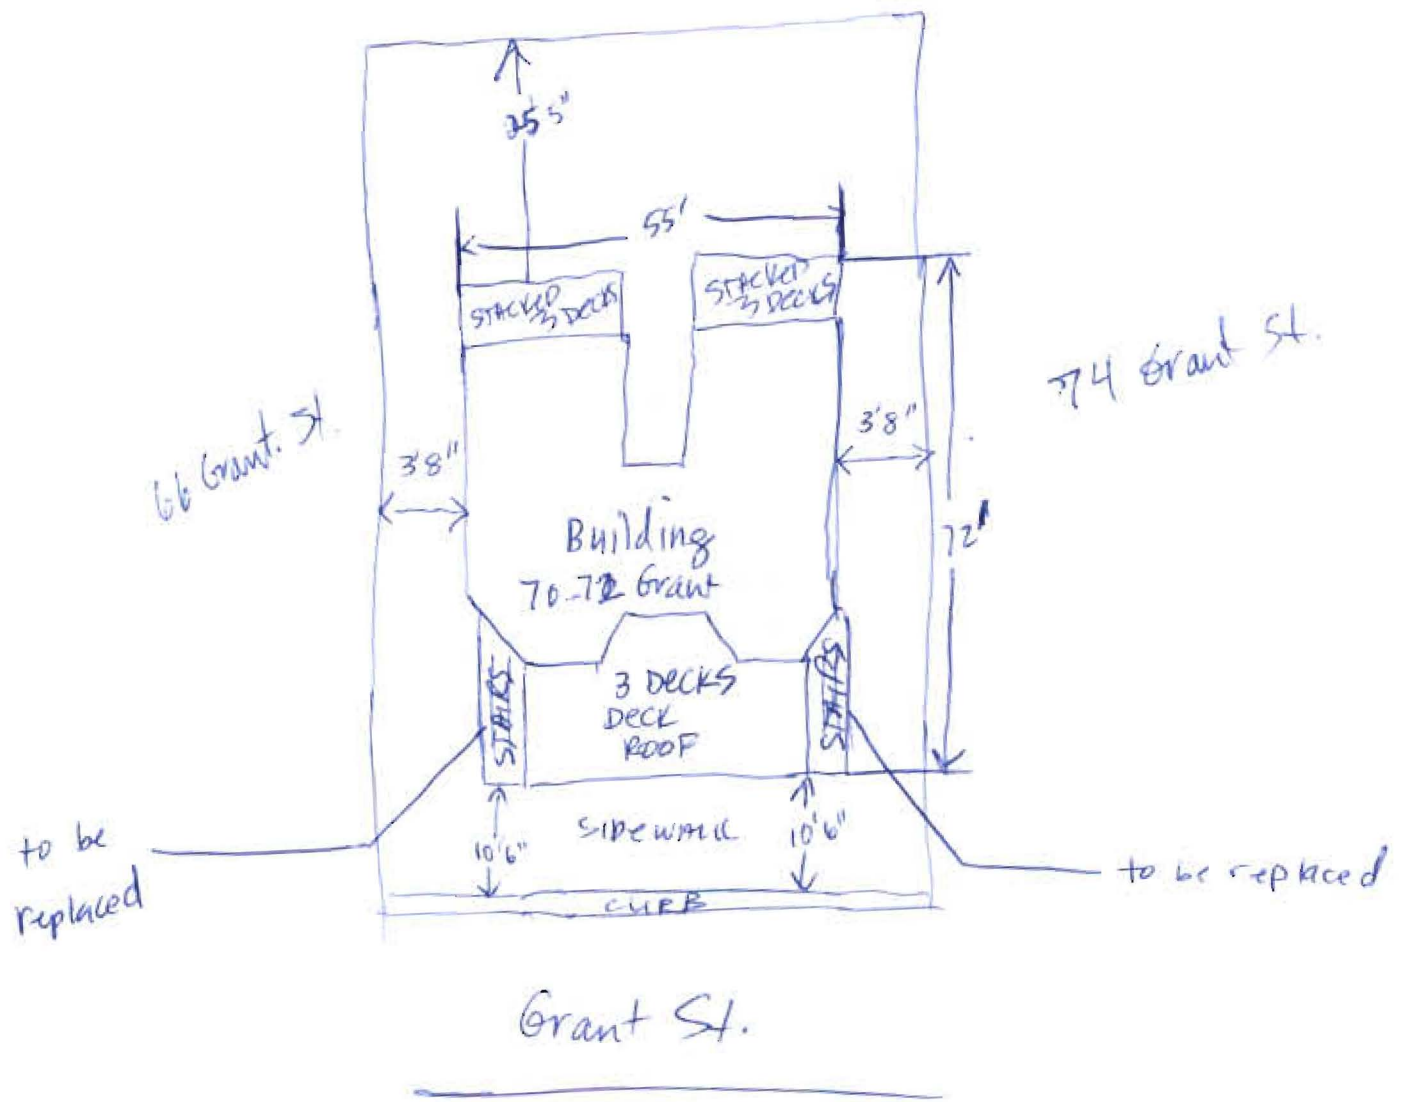 25'5"
55'
STACKED
3 DECKS
STACKED
3 DECKS
66 Grant. St.
74 Grant St.
3'8"
3'8"
72'
Building
70-72 Grant
STAIRS
3 DECKS
DECK
ROOF
STAIRS
to be
replaced
10'6"
SIDEWALK
10'6"
to be replaced
CURB
Grant St.